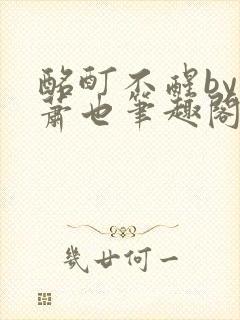 酩酊不醒by
萧也笔趣阁
几廿何一